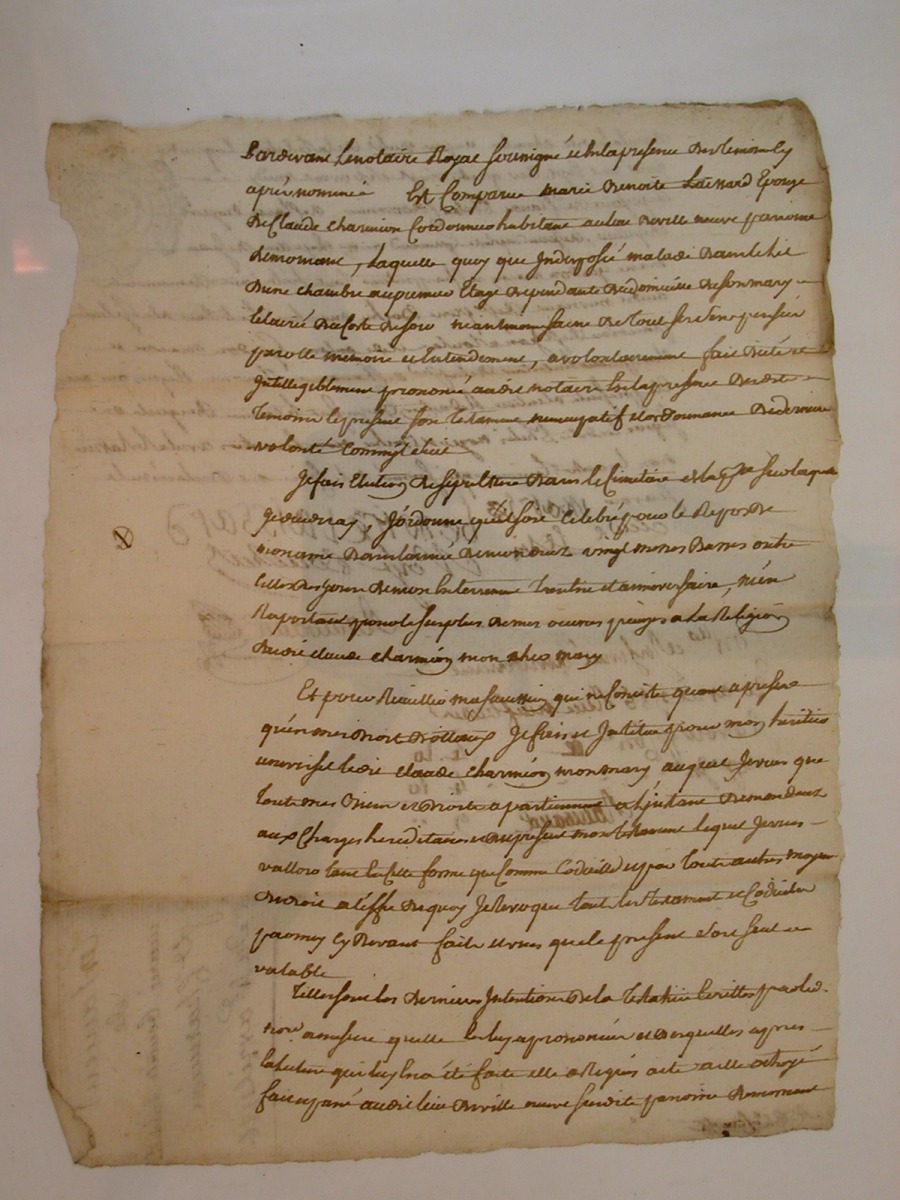 Pardevant Le notaire Royal soussigné et En la presence Des temoins Cy
aprés nommés Est Comparue marie Benoite Laënard Epouze
De Claude Charmion Cordonnier habitant au lieu De ville neuve paroisse
De mornant, Laquelle quoy que Indisposée malade Dans le lit
D'une chambre au premier Etage Dependante Du domicile De son mary
Eclairée Du Coté De soir néantmoins saine De tout ses sens pensées
parolle memoire et Entendement, a volontairement fait Dicté et
Intelligiblement prononcé audit notaire En la presence Desdits
temoins le present son testament nuncupatif et ordonnance De derniere
volonté Comme s'ensuit
Je fais Election De sepulture Dans le Cimetiere de la psse sur laquelle
Je decederay, J'ordonne qu'il soit Celebré pour le Repos De
mon ame Dans l'année De mon deces vingt messes Basses outre
Celles Des jours De mon Enterrement trentin et anniversaire, m'en
Raportant pour le surplus De mes oeuvres pieuses a La Religion
Dudit claude charmion mon cher mary
Et pour Recueillir ma succession qui ne Consiste quant a present
qu'en mes Droits Dotteaux Je fais et Institue pour mon heritier
universel ledit claude charmion mon mary auquel Je veux que
tout mes Biens et Droits apartiennent a l'instant De mon deces
aux Charges hereditaires et Du present mon testament lequel Je veux
valloir tant En Cette forme que Comme Codicille et par tout autres moyens
De droit a l'effet De quoy Je Revoque tout les testaments et Codicilles
par moy Cy Devant faits et veux que le present soit seul
valable
Telles sont les Dernieres Intentions De la testatrice Ecrittes par led.
nore. a mesure qu'elle les luy a prononcées et Desquelles apres
la lecture qui luy En a été faite elle a Requis acte a elle octroyé
fait et passé audit lieu De ville neuve susdite paroisse De mornant